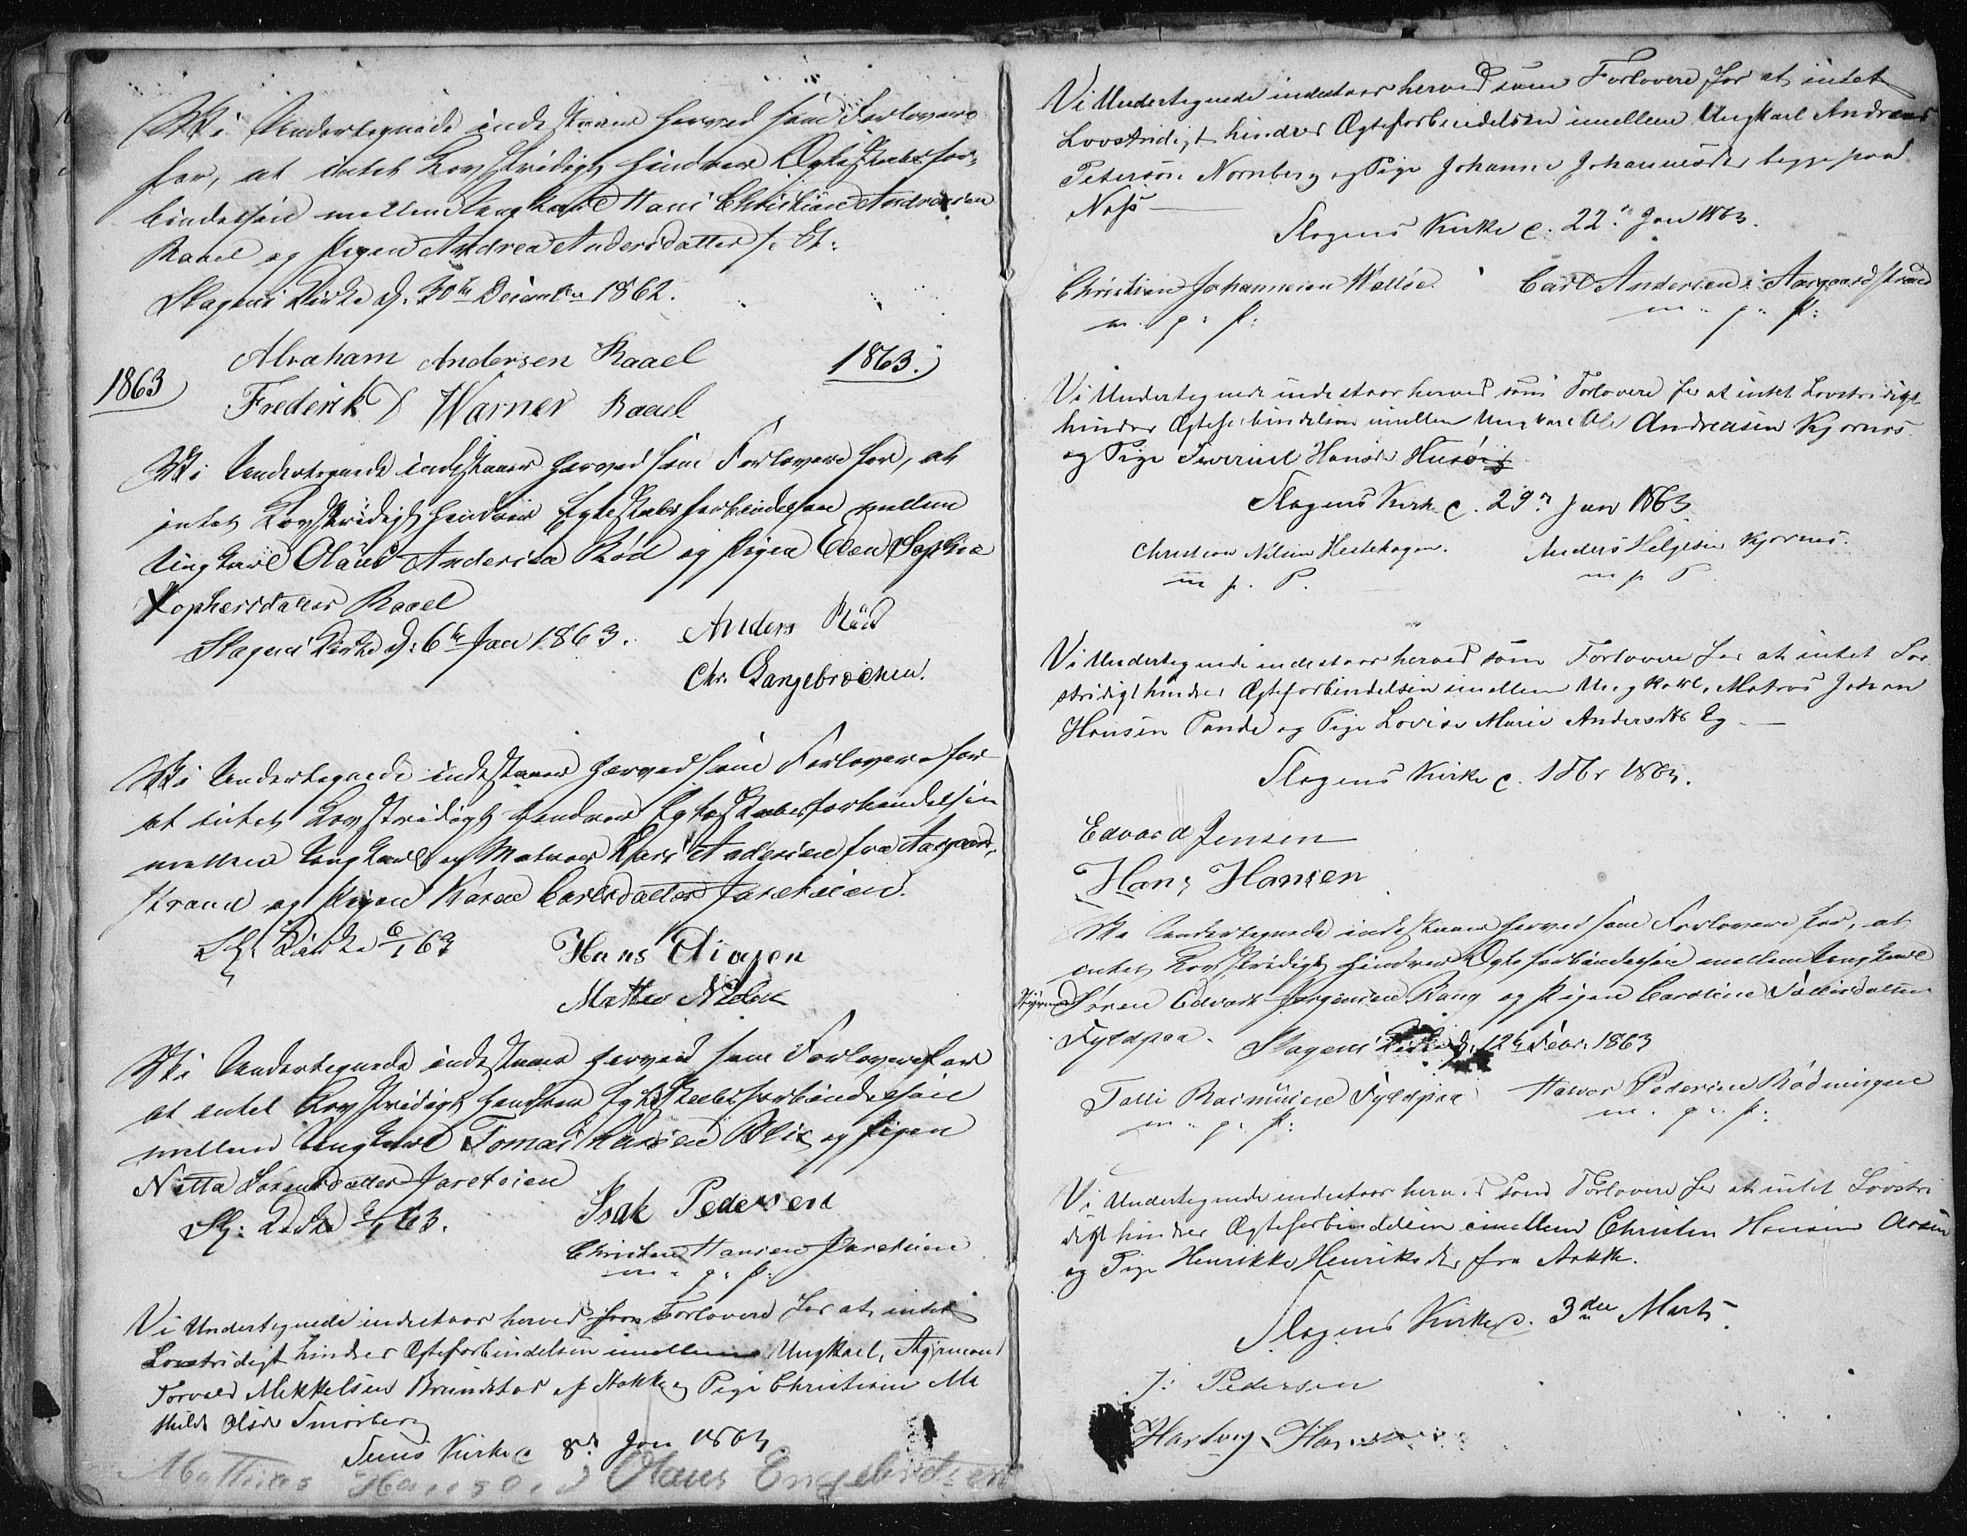 Vi Undertegnede indestaaer herved som Forlovere
for, at intet Lovstridigt hindrer Egteskabsfor-
bindelsen mellem Ungkarl Hans Christian Andreasen
Raael og Pigen Andrea Andersdatter
Slagens Kirke d. 30te December 1862.
Abraham Andersen Raael
1863 1863.
Frederik Warner Raael
Vi Undertegnede indestaaer herved som Forlovere for, at
intet Lovstridigt hindrer Egteskabsforbindelsen mellem
Ungkarl Olaus Andersen Rød og Pigen Elen Sophie
Raael
Slagens Kirke d. 6te Jan 1863. Anders Rød
Chr. Langebrechen.
Vi Undertegnede indestaaer herved som Forlovere for
at intet Lovstridigt hindrer Egteskabsforbindelsen
mellem Ungkarl og Matros Lars Andersen fra Aasgaard-
strand og Pigen Karen Carlsdatter Jareteien.
Sl. Kirke 6/1 63 Hans
Vi Undertegnede indestaaer herved som Forlovere for
at intet Lovstridigt hindrer Egteskabsforbindelsen
mellem Ungkarl Tomas Larsen Blix og Pigen
Nitta Larsdatter Jareteien
Sl. Kirke 6/1 63. Isak Pedersen
Christen Hansen Jareteien
m. p. P.
Vi Undertegnede indestaar herved som Forlovere for at intet
Lovstridigt hinder Ægteforbindelsen imellem Ungkarl, Styrmand
Torvald Mikkelsen Brundstad af Stokke og Pige Christiane Ma
thilde Olsdr Smørberg
Sems Kirke d 8de Jan 1863
Mathias Hansen Olaus Engebretsen
Vi Undertegnede indestaar herved som Forlovere for at intet
Lovstridigt hinder Ægteforbindelsen imellem Ungkarl Andreas
Petersøn Nornberg og Pige Johanne Johannesdr begge paa
Nøss
Slagens Kirke d. 22de Jan 1863.
Christian Johannesen Valløe Carl Andersen i Aasgaardstrand
m. p. P. m. p. P.
Vi Undertegnede indestaar herved som Forlovere for at intet Lovstridigt
hinder Ægteforbindelsen imellem Ungkarl Ole Andreasen Kjærnes
og Pige Severine Hansdr Husøi
Slagens Kirke d. 29de Jan 1863
Christian Nilsen Hestehagen. Anders Helgesen Kjærnes.
m p. P. m p P
Vi Undertegnede indestaar herved som Forlovere for at intet Lov
stridigt hinder Ægteforbindelsen imellem Ungkarl, Matros Johan
Hansen Tande og Pige Lovise Marie Andersdtr Eg
Slagens Kirke d. 1 Fbr 1863.
Edvard Jensen
Hans Hansen
Vi Undertegnede indestaaer herved som Forlovere for, at
intet Lovstridigt hindrer Egteforbindelsen mellem Ungkarl
Styrmand Søren Edvard Jørgensen Rang og Pigen Caroline Tallisdatter
Fyldpaa. Slagens Kirke d. 12te Febr. 1863
Talli Rasmussen Fyldpaa Halvor Pedersen Rødningen
m. p. P. m. p. P.
Vi Undertegnede indestaar herved som Forlovere for at intet Lovstri
digt hinder Ægteforbindelsen imellem Christen Hansen Aasen
og Pige Henrikke Henriksdr fra Stokke.
Slagens Kirke d. 3die Marts
J: Pedersen
Hartvig Hansen